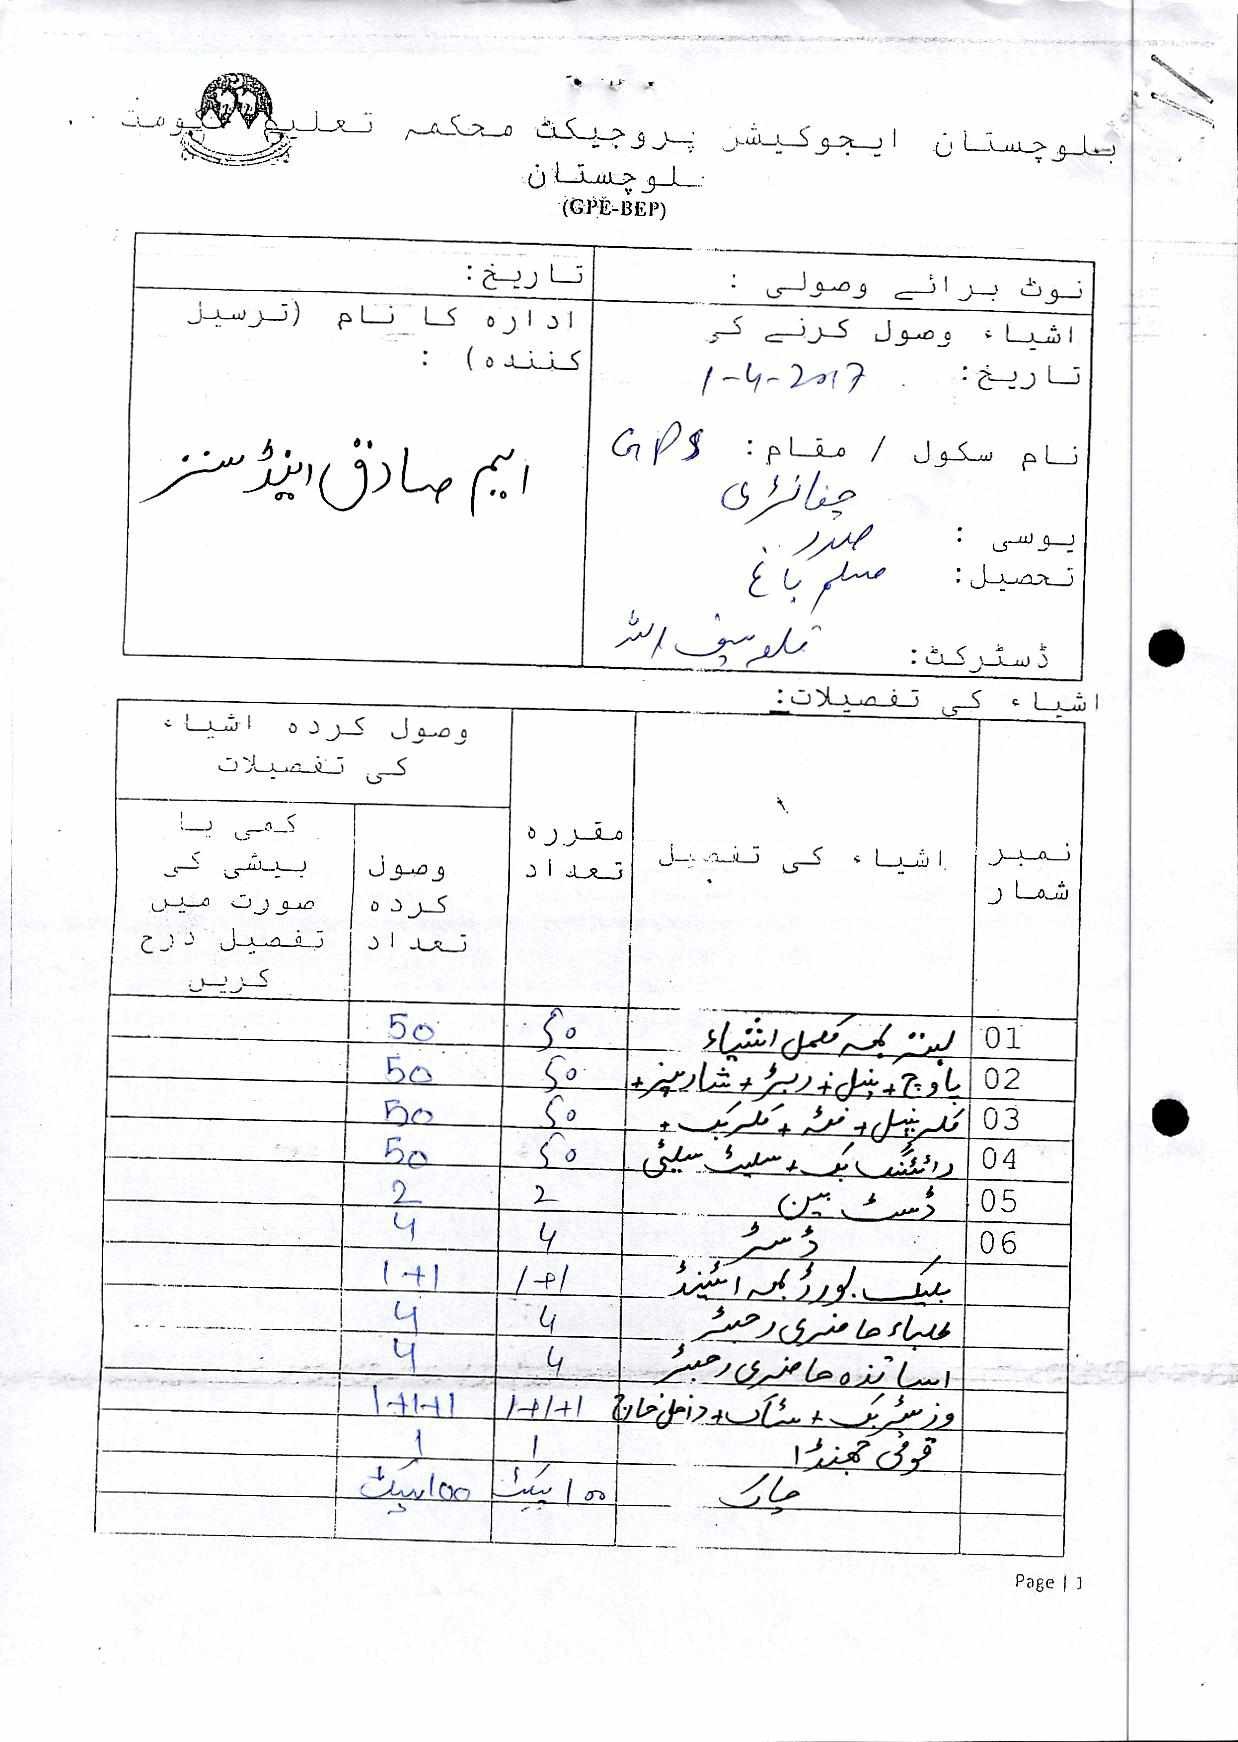 بلوچستان ایجوکیشن پروجیکٹ محکمہ تعلیم حکومت
بلوچستان
(GPE-BEP)
نوٹ برائے وصولی :
تاریخ:
اشیاء وصول کرنے کی
تاریخ: 1-4-2017
نام سکول / مقام: GPS
یوسی :
تحصیل: مسلم باغ
ڈسٹرکٹ: قلعہ سیف اللہ
ادارہ کا نام (ترسیل
کنندہ) :
ایم صادق اینڈ سنز
اشیاء کی تفصیلات:
نمبر
شمار
اشیاء کی تفصیل
مقررہ
تعداد
وصول کردہ اشیاء
کی تفصیلات
وصول
کردہ
تعداد
کمی یا
بیشی کی
صورت میں
تفصیل درج
کریں
01 بستہ بمعہ مکمل اشیاء 50 50
02 پاوچ + پنسل + ربڑ + شارپنر + 50 50
03 کلر پنسل + فٹہ + کلر بک + 50 50
04 رائیٹنگ بک + سلیٹ سلیٹی 50 50
05 ڈسٹ بین 2 2
06 ڈسٹر 4 4
بلیک بورڈ بمعہ اسٹینڈ 1+1 1+1
طلباء حاضری رجسٹر 4 4
اساتذہ حاضری رجسٹر 4 4
وزیٹر بک + سٹاک + داخل خارج 1+1+1 1+1+1
قومی جھنڈا 1 1
چاک 100 پیکٹ 100 پیکٹ
Page | 1